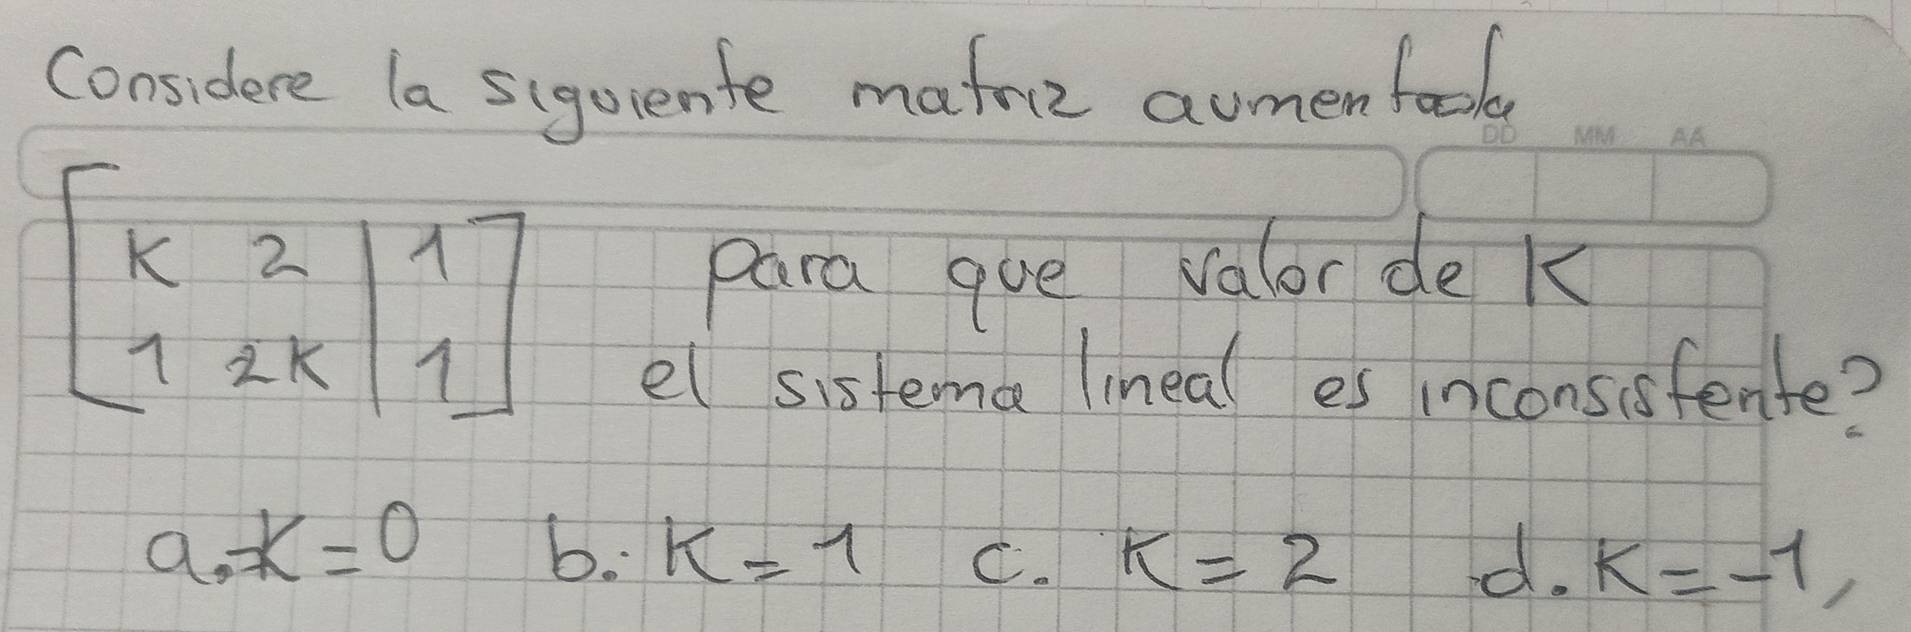 Considere la siguiente matriz aumentada
DD MM AA
K 2 | 1 para que valor de K
1 2K | 1 el sistema lineal es inconsistente?
a. K = 0 b. K = 1 c. K = 2 d. K = -1,